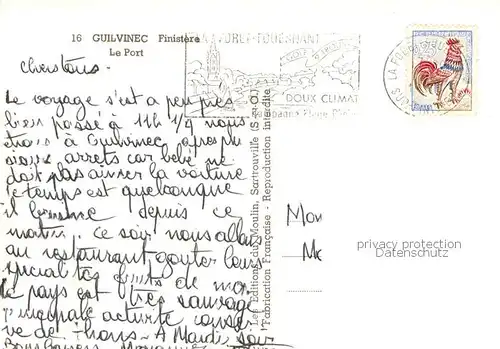 16 GUILVINEC Finistère
Le Port
LA FORET-FOUESNANT
DOUX CLIMAT
chers tous.
Le voyage s'est a peu près
bien passé à 11h 1/4 nous
étions à Guilvinec après
arrêts car bébé ne
doit pas aimer la voiture
le temps est quelconque
il bruine depuis ce
matin. Ce soir nous allons
au restaurant gouter leurs
spécialités fruits de mer
Le pays est très sauvage
principale activité conser
ve de thons - A Mardi soir
Les Editions du Moulin, Sartrouville (S.-&-O.)
Fabrication Française - Reproduction interdite
privacy protection
Datenschutz